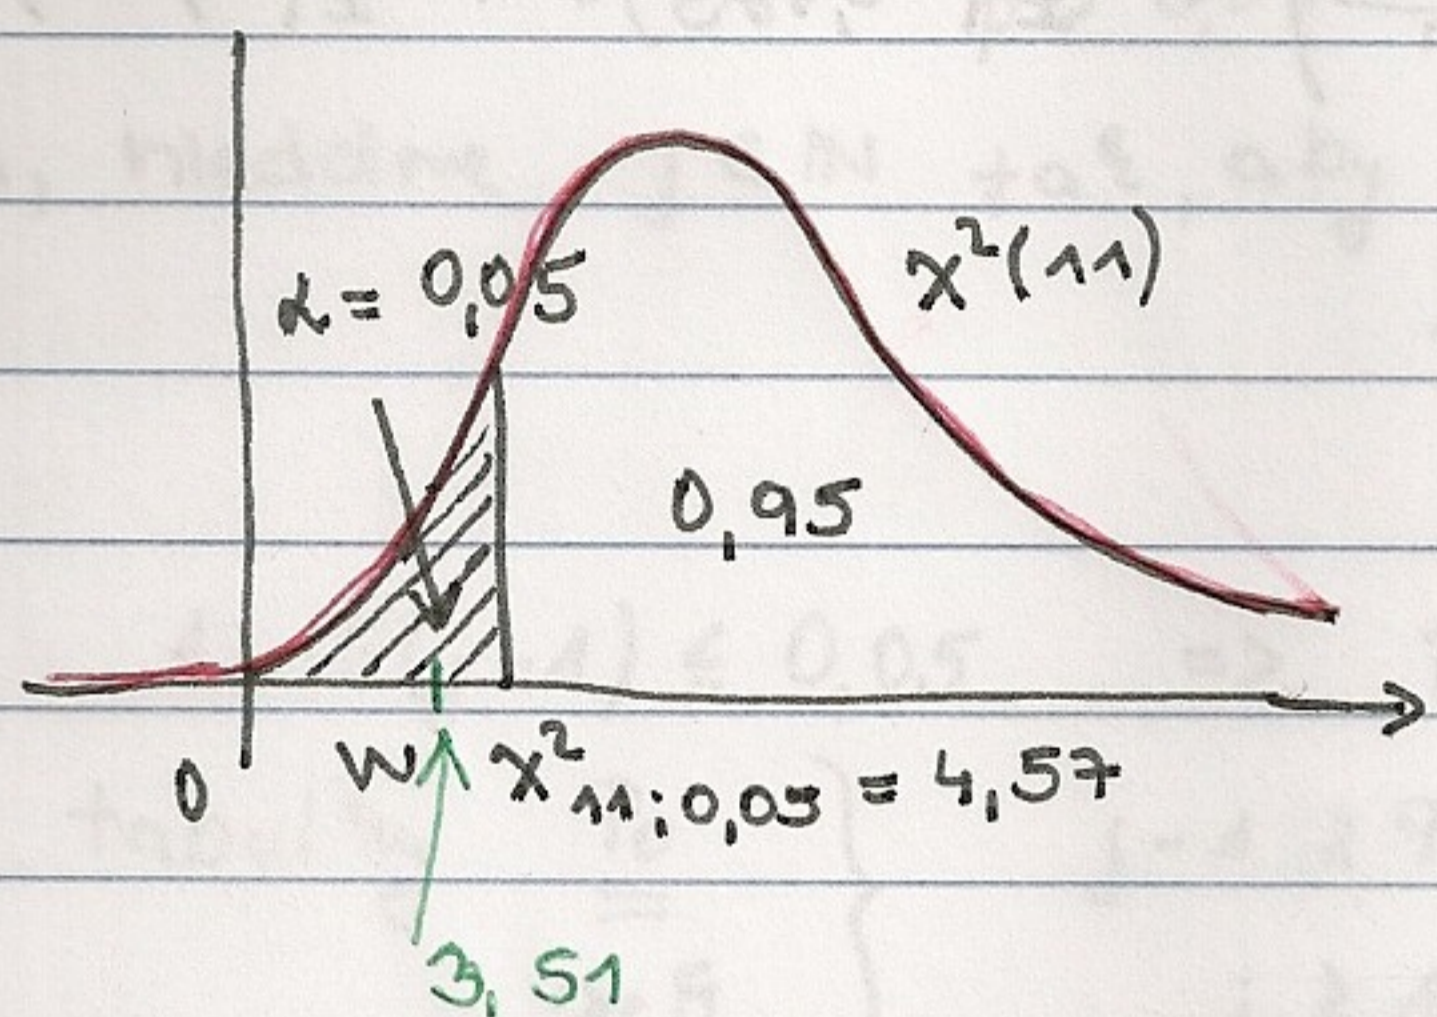 α = 0,05
χ²(11)
0,95
0
W
χ²₁₁;₀,₀₅ = 4,57
3,51